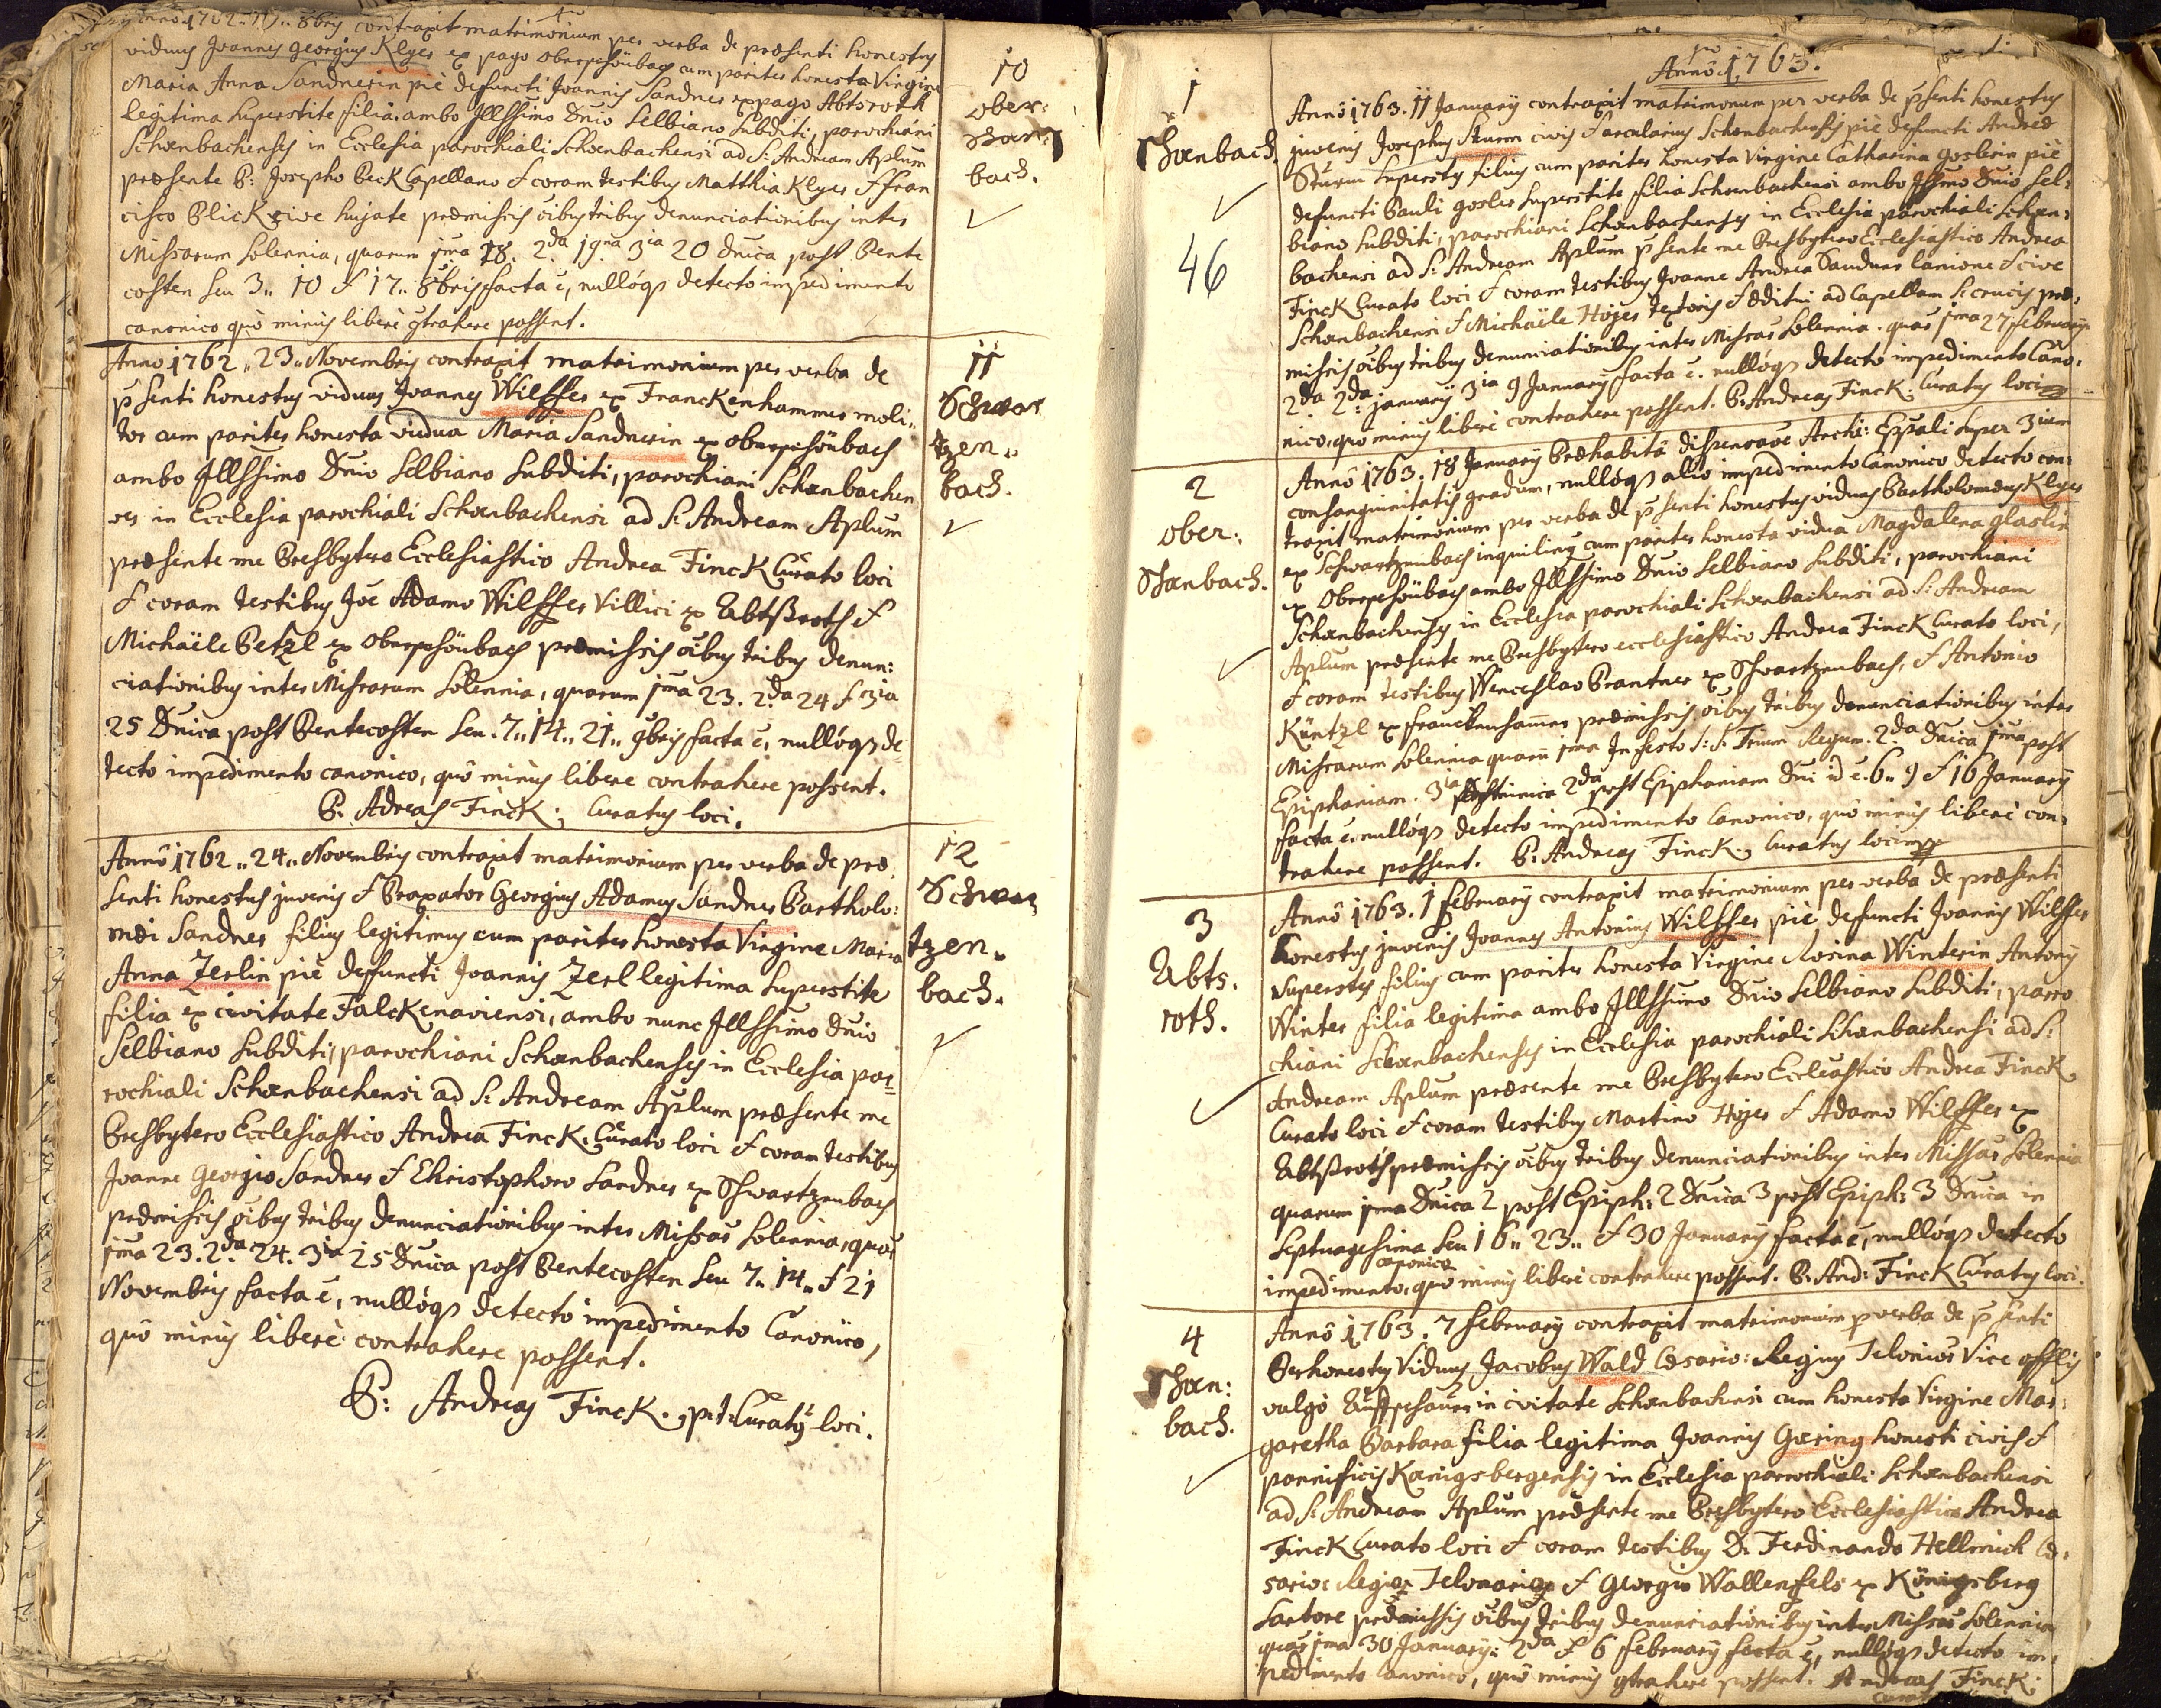 Anno 1762 . 19 .. 8bris contraxit matrimonium per verba de præsenti honestus
viduus Joannes Georgius Klyer ex pago Oberschönbach cum pariter honesta Virgine
Maria Anna Sandnerin piè defuncti Joannis Sandner ex pago Abtsroth
legitima superstite filia, ambo Jllssimo Dnio Selbiano subditi, parochiani
Schœnbachenses in Ecclesia parochiali Schœnbachensi ad S: Andream Aplum
præsente P: Josepho Beck Capellano & coram testibus Matthia Klyer & Fran
cisco Plick cive hujate præmissis oibus tribus denunciationibus inter
Missarum Solennia, quarum 1ma 18. 2da 19na 3ia 20 Dnica post Pente
costen seu 3.. 10 & 17.. 8bris facta ē, nulloq3 detecto impedimento
canonico quò minus liberè ctrahere possent.
10
Ober:
Schœn
bach.
Anno 1762 .. 23.. Novembris contraxit matrimonium per verba de
p̄senti honestus viduus Joannes Wilfser ex Franckenhammer moli..
tor cum pariter honesta vidua Maria Sandnerin ex Oberschönbach
ambo Jllssimo Dnio Selbiano subditi, parochiani Schœnbachen
ses in Ecclesia parochiali Schœnbachensi ad S: Andream Aplum
præsente me Presbytero Ecclesiastico Andrea Finck Curato loci
& coram testibus Joē Adamo Wilfser Villici ex Abtßroth &
Michaële Petzl ex Oberschönbach præmissis oibus tribus denun:
ciationibus inter Missarum Solennia, quarum 1ma 23. 2da 24 & 3ia
25 Dnica post Pentecosten seu .7.. 14.. 21.. 9bris facta ē, nulloq3 de
tecto impedimento canonico, quô minùs libere contrahere possent.
P. Adreas Finck; Curatus loci.
11
Schwar
tzen..
bach.
Annô 1762 .. 24.. Novembris contraxit matrimonium per verba de præ.
senti honestus juvenis & Braxator Georgius Adamus Sandner Bartholo:
mæi Sandner filius legitimus cum pariter honesta Virgine Maria
Anna Zerlin piè defuncti Joannis Zerl legitima superstite
filia ex civitate Falckenaviensi, ambo nunc Jllssimo Dnio
Selbiano subditi, parochiani Schœnbachenses in Ecclesia pa=
rochiali Schœnbachensi ad S: Andream Aplum præsente me
Presbytero Ecclesiastico Andrea Finck. Curato loci & coram testibus
Joanne Georgio Sandner & Christophoro Sandner ex Schwartzenbach
præmissis oibus tribus denunciationibus inter Missas Solennia, quas
1ma 23. 2da 24. 3ia 25 Dnica post Pentecosten seu 7.. 14.. & 21
Novembris facta ē, nulloq3 detecto impedimento Canonico,
quô minus liberè contrahere possent.
P: Andreas Finck., p:t: Curatus loci.
12
Schwar
tzen..
bach.
Annô 1763.
1
Schœnbach.
46
Annô 1763. 11 January contraxit matrimonium per verba de p̄senti honestus
juvenis Josephus Sturm civis & arcularius Schœnbachensis piè defuncti Andreæ
Sturm superstes filius cum pariter honesta Virgine Catharina Goslerin piè
defuncti Pauli Gosler superstite filia Schœnbachensi ambo Jssimo Dnio Sel:
biano subditi, parochiani Schœnbachenses in Ecclesia parochiali Schœn:
bachensi ad S: Andream Aplum p̄sente me Presbytero Ecclesiastico Andrea
Finck Curato loci & coram testibus Joanne Andrea Sandner lanione & cive
Schœnbachensi & Michaële Hojer textoris & æditui ad Capellam S: crucis præ:
missis oibus tribus denunciationibus inter Missas Solennia. quas 1ma 27 February
2da 2da january 3ia 9 January facta ē. nulloq3 detecto impedimento Cano:
nico, quo minùs liberè contrahere possent. P: Andreas Finck. Curatus loci
2
Ober:
Schœnbach.
Annô 1763. 18 January Præhabitâ dispensaõe Archi: Eppali super 3ium
consanguinitatis gradum, nulloq3 alio impedimento Canonico detecto con:
traxit matrimonium per verba de p̄senti honestus viduus Bartholomæus Klyer
ex Schwartzenbach inquilinus cum pariter honesta vidua Magdalena Glaslin
ex Oberschönbach ambo Jllssimo Dnio Selbiano subditi, parochiani
Schœnbachenses in Ecclesia parochiali Schœnbachensi ad S: Andream
Aplum præsente me Presbytero ecclesiastico Andrea Finck Curato loci,
& coram testibus Wenceslao Brantner ex Schwartzenbach, & Antonio
Küntzl ex Franckenhammer præmissis oibus tribus denunciationibus inter
Missarum Solennia quarū 1ma In festo S:S: Trium Regum. 2da Dnica 1ma post
Epiphaniam. 3ia Dominica 2da post Epiphaniam Dni id ē. 6.. 9 & 16 January
facta ē. nulloq3 detecto impedimento Canonico, quô minùs liberè con:
trahere possent. P: Andreas Finck., Curatus loci mpp
3
Abts.
roth.
Annô 1763. 1 February contraxit matrimonium per verba de præsenti
honestus juvenis Joannes Antonius Wilfser piè defuncti Joannis Wilfser
superstes filius cum pariter honesta Virgine Rosina Winterin Antony
Winter filia legitima ambo Jllssimo Dnio Selbiano subditi, paro
chiani Schœnbachenses in Ecclesia parochiali Schœnbachensi ad S:
Andream Aplum præsente me Presbytero Ecclesiastico Andrea Finck
Curato loci & coram testibus Martino Hojer & Adamo Wilfser ex
Abtßroth præmissis oibus tribus denunciationibus inter Missas Solennia
quarum 1ma Dnica 2 post Epiph: 2 Dnica 3 post Epiph: 3 Dnica in
Septuagesima seu 16.. 23.. & 30 January facta ē, nulloq3 detecto
impedimento canonico, quô minùs liberè contrahere possent. P: And: Finck Curatus loci.
4
Schœn:
bach.
Annô 1763. 7 February contraxit matrimonium p verba de p̄senti
Perhonestus Viduus Jacobus Wald Cæsario: Regius Telonior Vice
vulgò Auffschauer in civitate Schœnbachensi cum honesta Virgine Mar:
garetha Barbara filia legitima Joannis Gœring honesti civis &
pannificis Kœnigsbergensis in Ecclesia parochiali Schœnbachensi
ad S: Andream Aplum præsente me Presbytero Ecclesiastico Andrea
Finck Curato loci & coram testibus D: Ferdinando Hellmich Cæ:
sario: Regior Telonario & Georgio Wallenfels ex Königsberg
Sartore præmissis oibus tribus denunciationibus inter Missas Solennia
quas 1ma 30 January: 2da & 6 February facta ē, nulloq3 detecto im:
pedimento Canonico, quô minùs ctrahere possent. Andreas Finck: